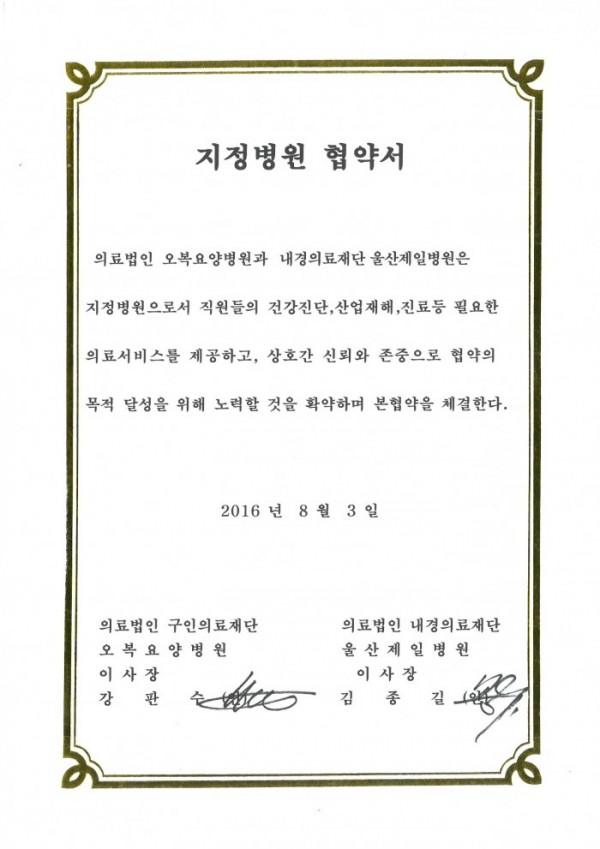 지정병원 협약서
의료법인 오복요양병원과 내경의료재단 울산제일병원은
지정병원으로서 직원들의 건강진단,산업재해,진료등 필요한
의료서비스를 제공하고, 상호간 신뢰와 존중으로 협약의
목적 달성을 위해 노력할 것을 확약하며 본협약을 체결한다.
2016 년 8 월 3 일
의료법인 구인의료재단
오 복 요 양 병 원
이 사 장
강 판 수
의료법인 내경의료재단
울 산 제 일 병 원
이 사 장
김 종 길 (인)